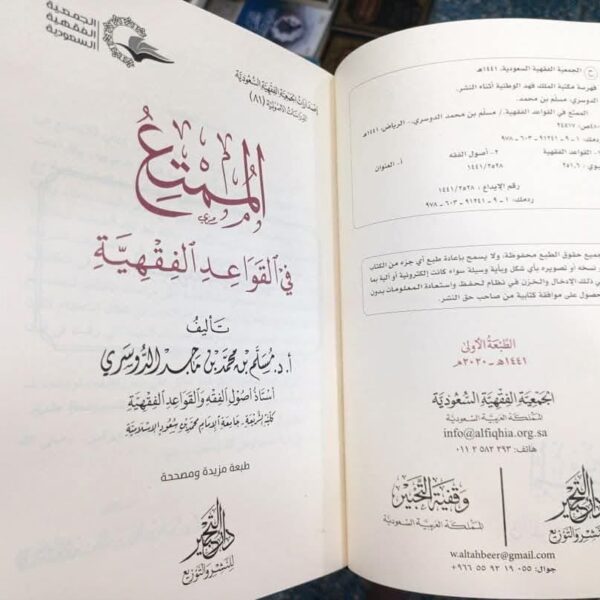 الجمعية
الفقهية
السعودية
إصدارات الجمعية الفقهية السعودية
الدراسات الأصولية (٨١)
المُمْتِعُ
فِي القَوَاعِدِ الفِقْهِيَّةِ
تَأليفُ
أ.د. مُسَلَّم بن مُحمَّد بن مَاجِد الدُّوسَري
أستاذ أصول الفقه والقواعد الفقهية
كلية الشريعة، جامعة الإمام محمد بن سعود الإسلامية
طبعة مزيدة ومصححة
دار التحبير
للنشر والتوزيع
ح الجمعية الفقهية السعودية، ١٤٤١هـ
فهرسة مكتبة الملك فهد الوطنية أثناء النشر
الدوسري، مسلم بن محمد
الممتع في القواعد الفقهية./ مسلم بن محمد الدوسري.- الرياض، ١٤٤١هـ
ردمك: ١ - ٩ - ٩١٢٤١ - ٦٠٣ - ٩٧٨
١- القواعد الفقهية ٢- أصول الفقه أ. العنوان
ديوي ٢٥١,٦ ١٤٤١/٢٥٢٨
رقم الإيداع: ١٤٤١/٢٥٢٨
ردمك: ١ - ٩ - ٩١٢٤١ - ٦٠٣ - ٩٧٨
جميع حقوق الطبع محفوظة، ولا يسمح بإعادة طبع أي جزء من الكتاب
أو نسخه أو تصويره بأي شكل وبأية وسيلة سواء كانت إلكترونية أو آلية بما
في ذلك الإدخال والخزن في نظام لحفظ واستعادة المعلومات بدون
الحصول على موافقة كتابية من صاحب حق النشر.
الطَّبْعَةُ الأُولَى
١٤٤١هـ - ٢٠٢٠م
الجمعية الفقهية السعودية
المملكة العربية السعودية
info@alfiqhia.org.sa
هاتف: ٠١١ ٢ ٥٨٢ ٢٩٣
دار التحبير
للنشر والتوزيع
وقفية التحبير
المملكة العربية السعودية
w.altahbeer@gmail.com
جوال: ٠٥٥ ١٩ ٩٣ ٥٥ ٩٦٦+